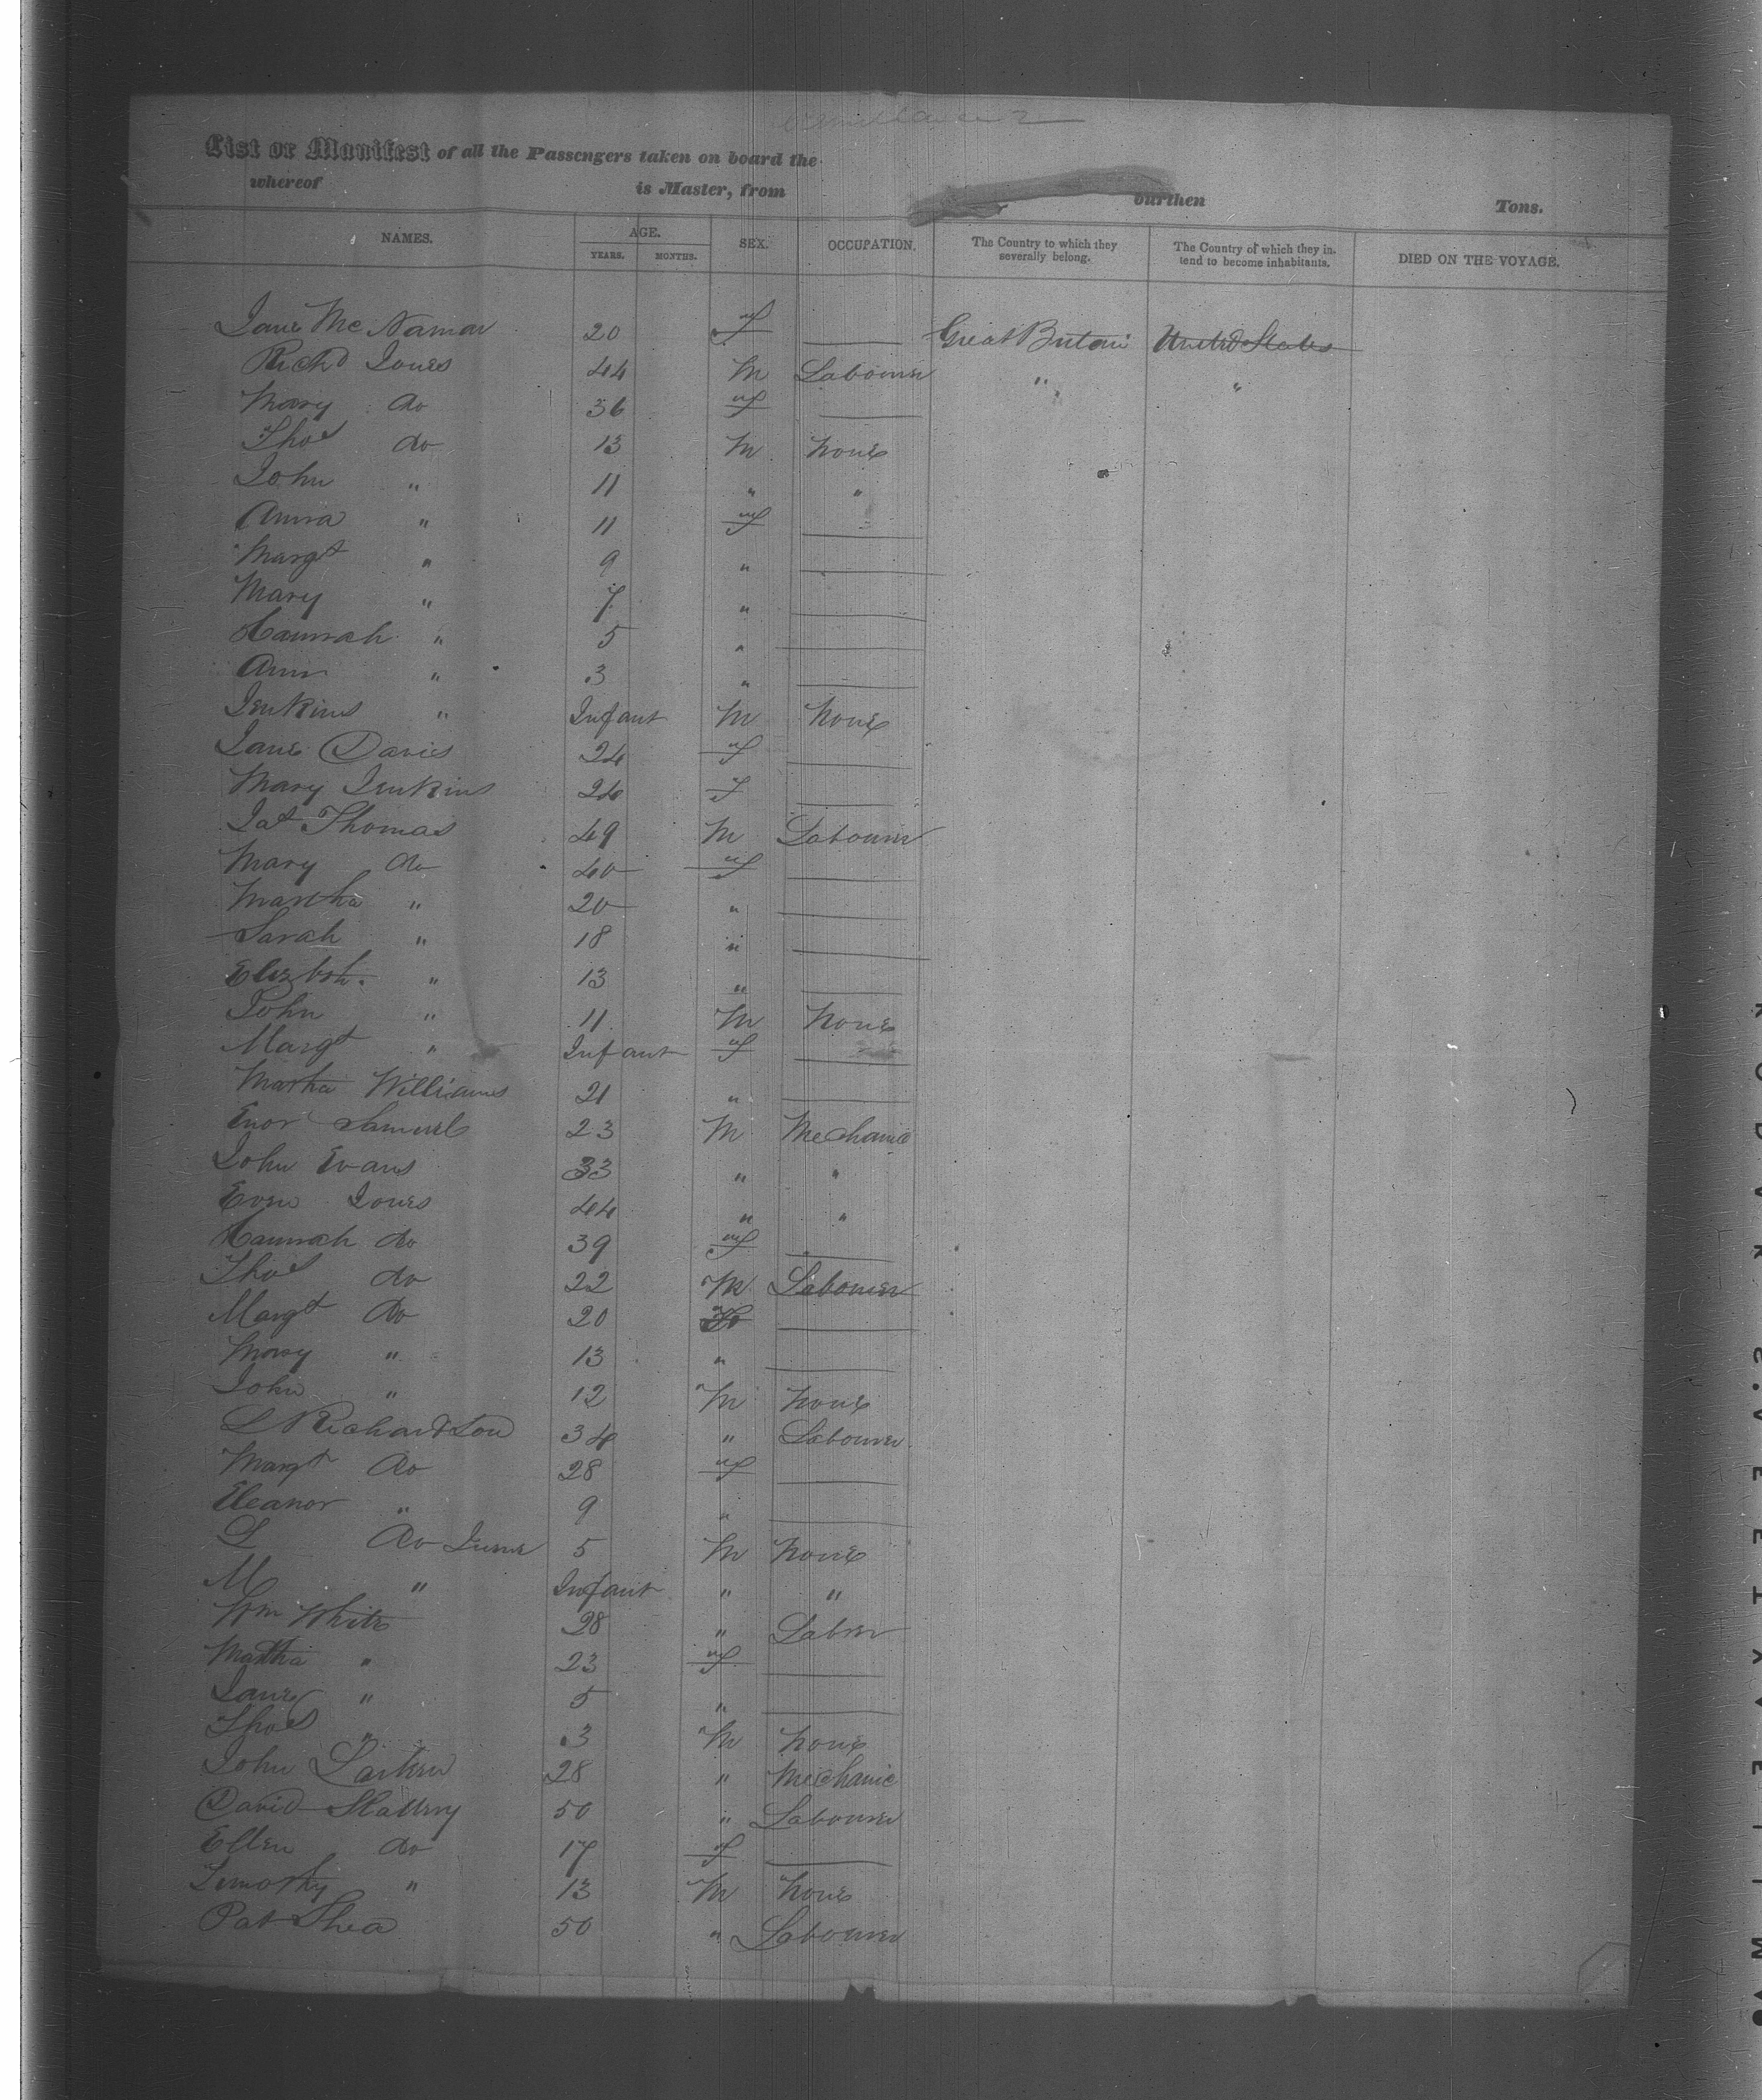 List or Manifest of all the Passengers taken on board the
whereof is Master, from burthen Tons.
NAMES. AGE. YEARS. MONTHS. SEX. OCCUPATION. The Country to which they severally belong. The Country of which they intend to become inhabitants. DIED ON THE VOYAGE.
Jane McNamar 20 f — Great Britain United States
Richd Jones 44 M Labourer " "
Mary do 36 f —
Thos do 13 M None
John " 11 " "
Anna " 11 f —
Margt " 9 " —
Mary " 7 " —
Hannah " 5 " —
Ann " 3 " —
Jenkins " Infant M None
Jane Davies 24 f —
Mary Jenkins 24 f —
Jas Thomas 49 M Labourer
Mary do 40 f —
Martha " 20 " —
Sarah " 18 " —
Elizbth. " 13 " —
John " 11 M None
Margt " Infant f —
Martha Williams 21 " —
Enor Samuel 23 M Mechanic
John Evans 33 " "
Even Jones 44 " "
Hannah do 39 f —
Thos do 22 M Labourer
Margt do 20 —
Mary " 13 " —
John " 12 M None
L Richardson 34 " Labourer
Margt do 28 f —
Eleanor " 9 " —
L do Junr 5 M None
M " Infant " "
Wm White 28 " Labrer
Martha " 23 f —
Jane " 5 " —
Thos " 3 M None
John Larken 28 " Mechanic
David Slattery 50 " Labourer
Ellen do 17 f —
Timothy " 13 M None
Pat Shea 50 " Labourer